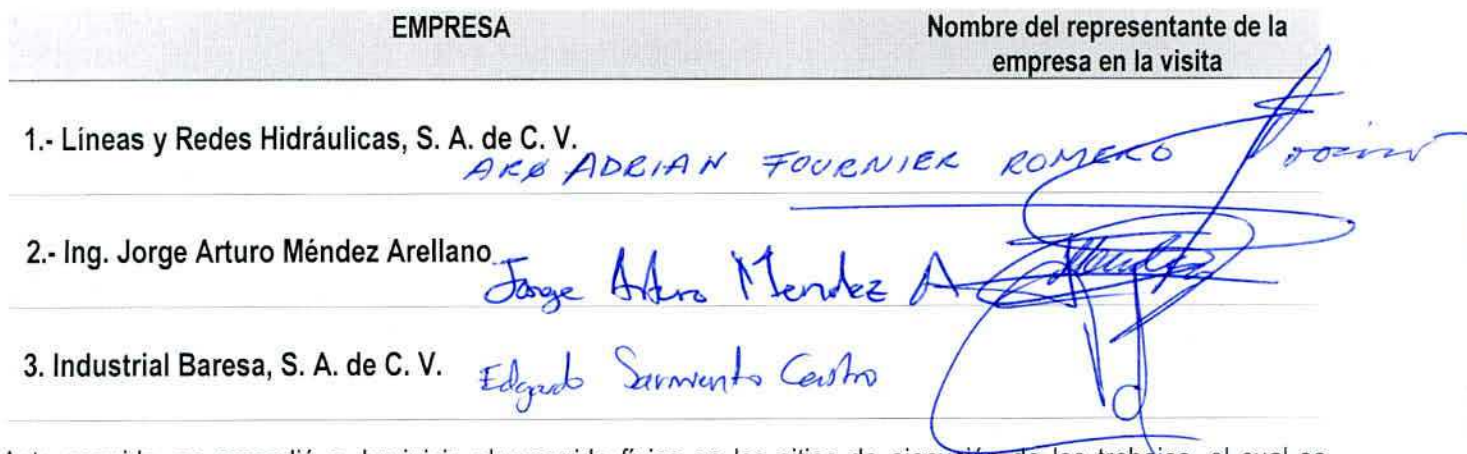 EMPRESA
Nombre del representante de la
empresa en la visita
1.- Líneas y Redes Hidráulicas, S. A. de C. V.
ARQ ADRIAN FOURNIER ROMERO
2.- Ing. Jorge Arturo Méndez Arellano
Jorge Arturo Mendez A
3. Industrial Baresa, S. A. de C. V.
Edgardo Sarmiento Castro